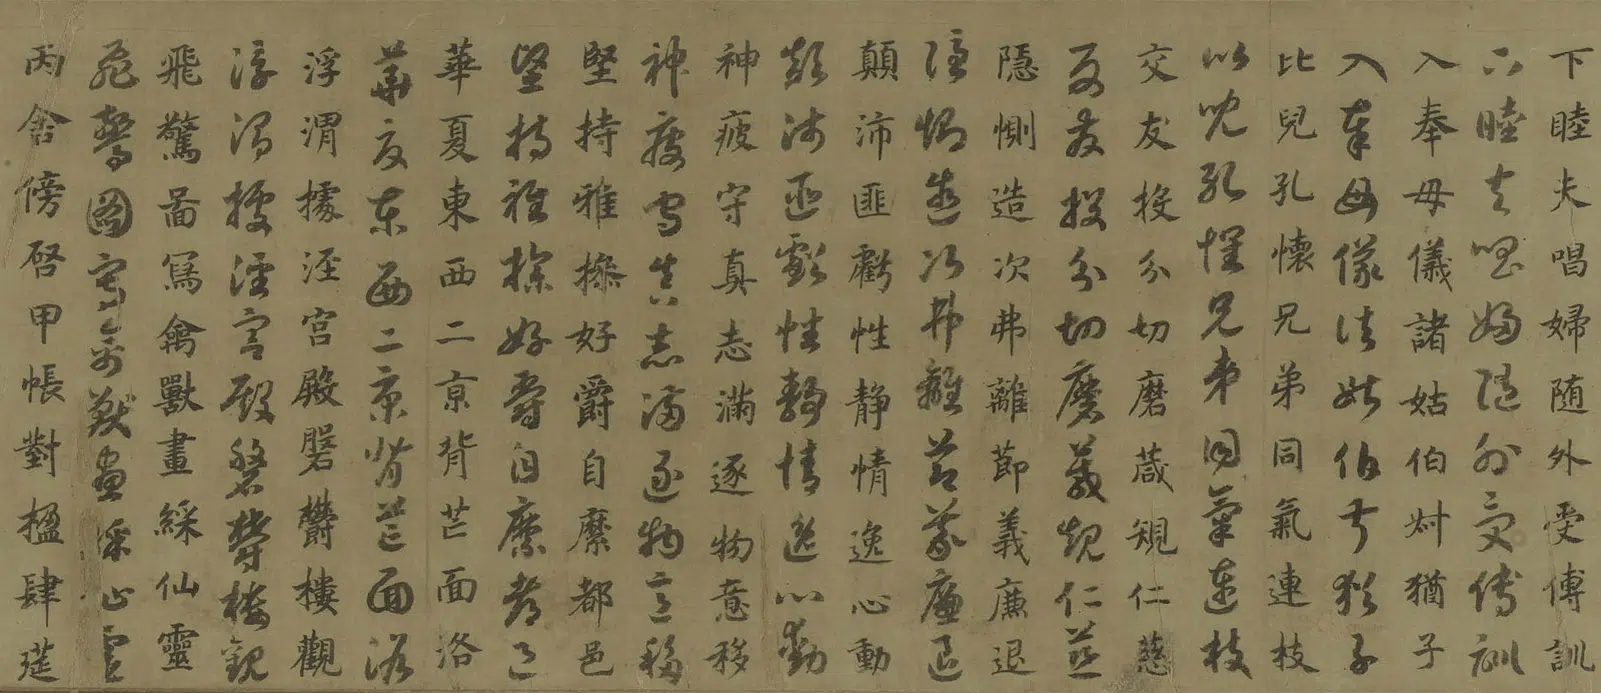 下睦夫唱婦随外受傅訓
下睦夫唱婦随外受傅訓
入奉母儀諸姑伯叔猶子
入奉母儀諸姑伯叔猶子
比兒孔懷兄弟同氣連枝
比兒孔懷兄弟同氣連枝
交友投分切磨葴規仁慈
交友投分切磨葴規仁慈
隱惻造次弗離節義廉退
隱惻造次弗離節義廉退
顛沛匪虧性静情逸心動
顛沛匪虧性静情逸心動
神疲守真志滿逐物意移
神疲守真志滿逐物意移
堅持雅操好爵自縻都邑
堅持雅操好爵自縻都邑
華夏東西二京背芒面洛
華夏東西二京背芒面洛
浮渭據涇宫殿磐欝樓觀
浮渭據涇宫殿磐欝樓觀
飛驚啚寫禽獸畫綵仙靈
飛驚圖寫禽獸畫綵仙靈
丙舍傍啓甲帳對楹肆莚